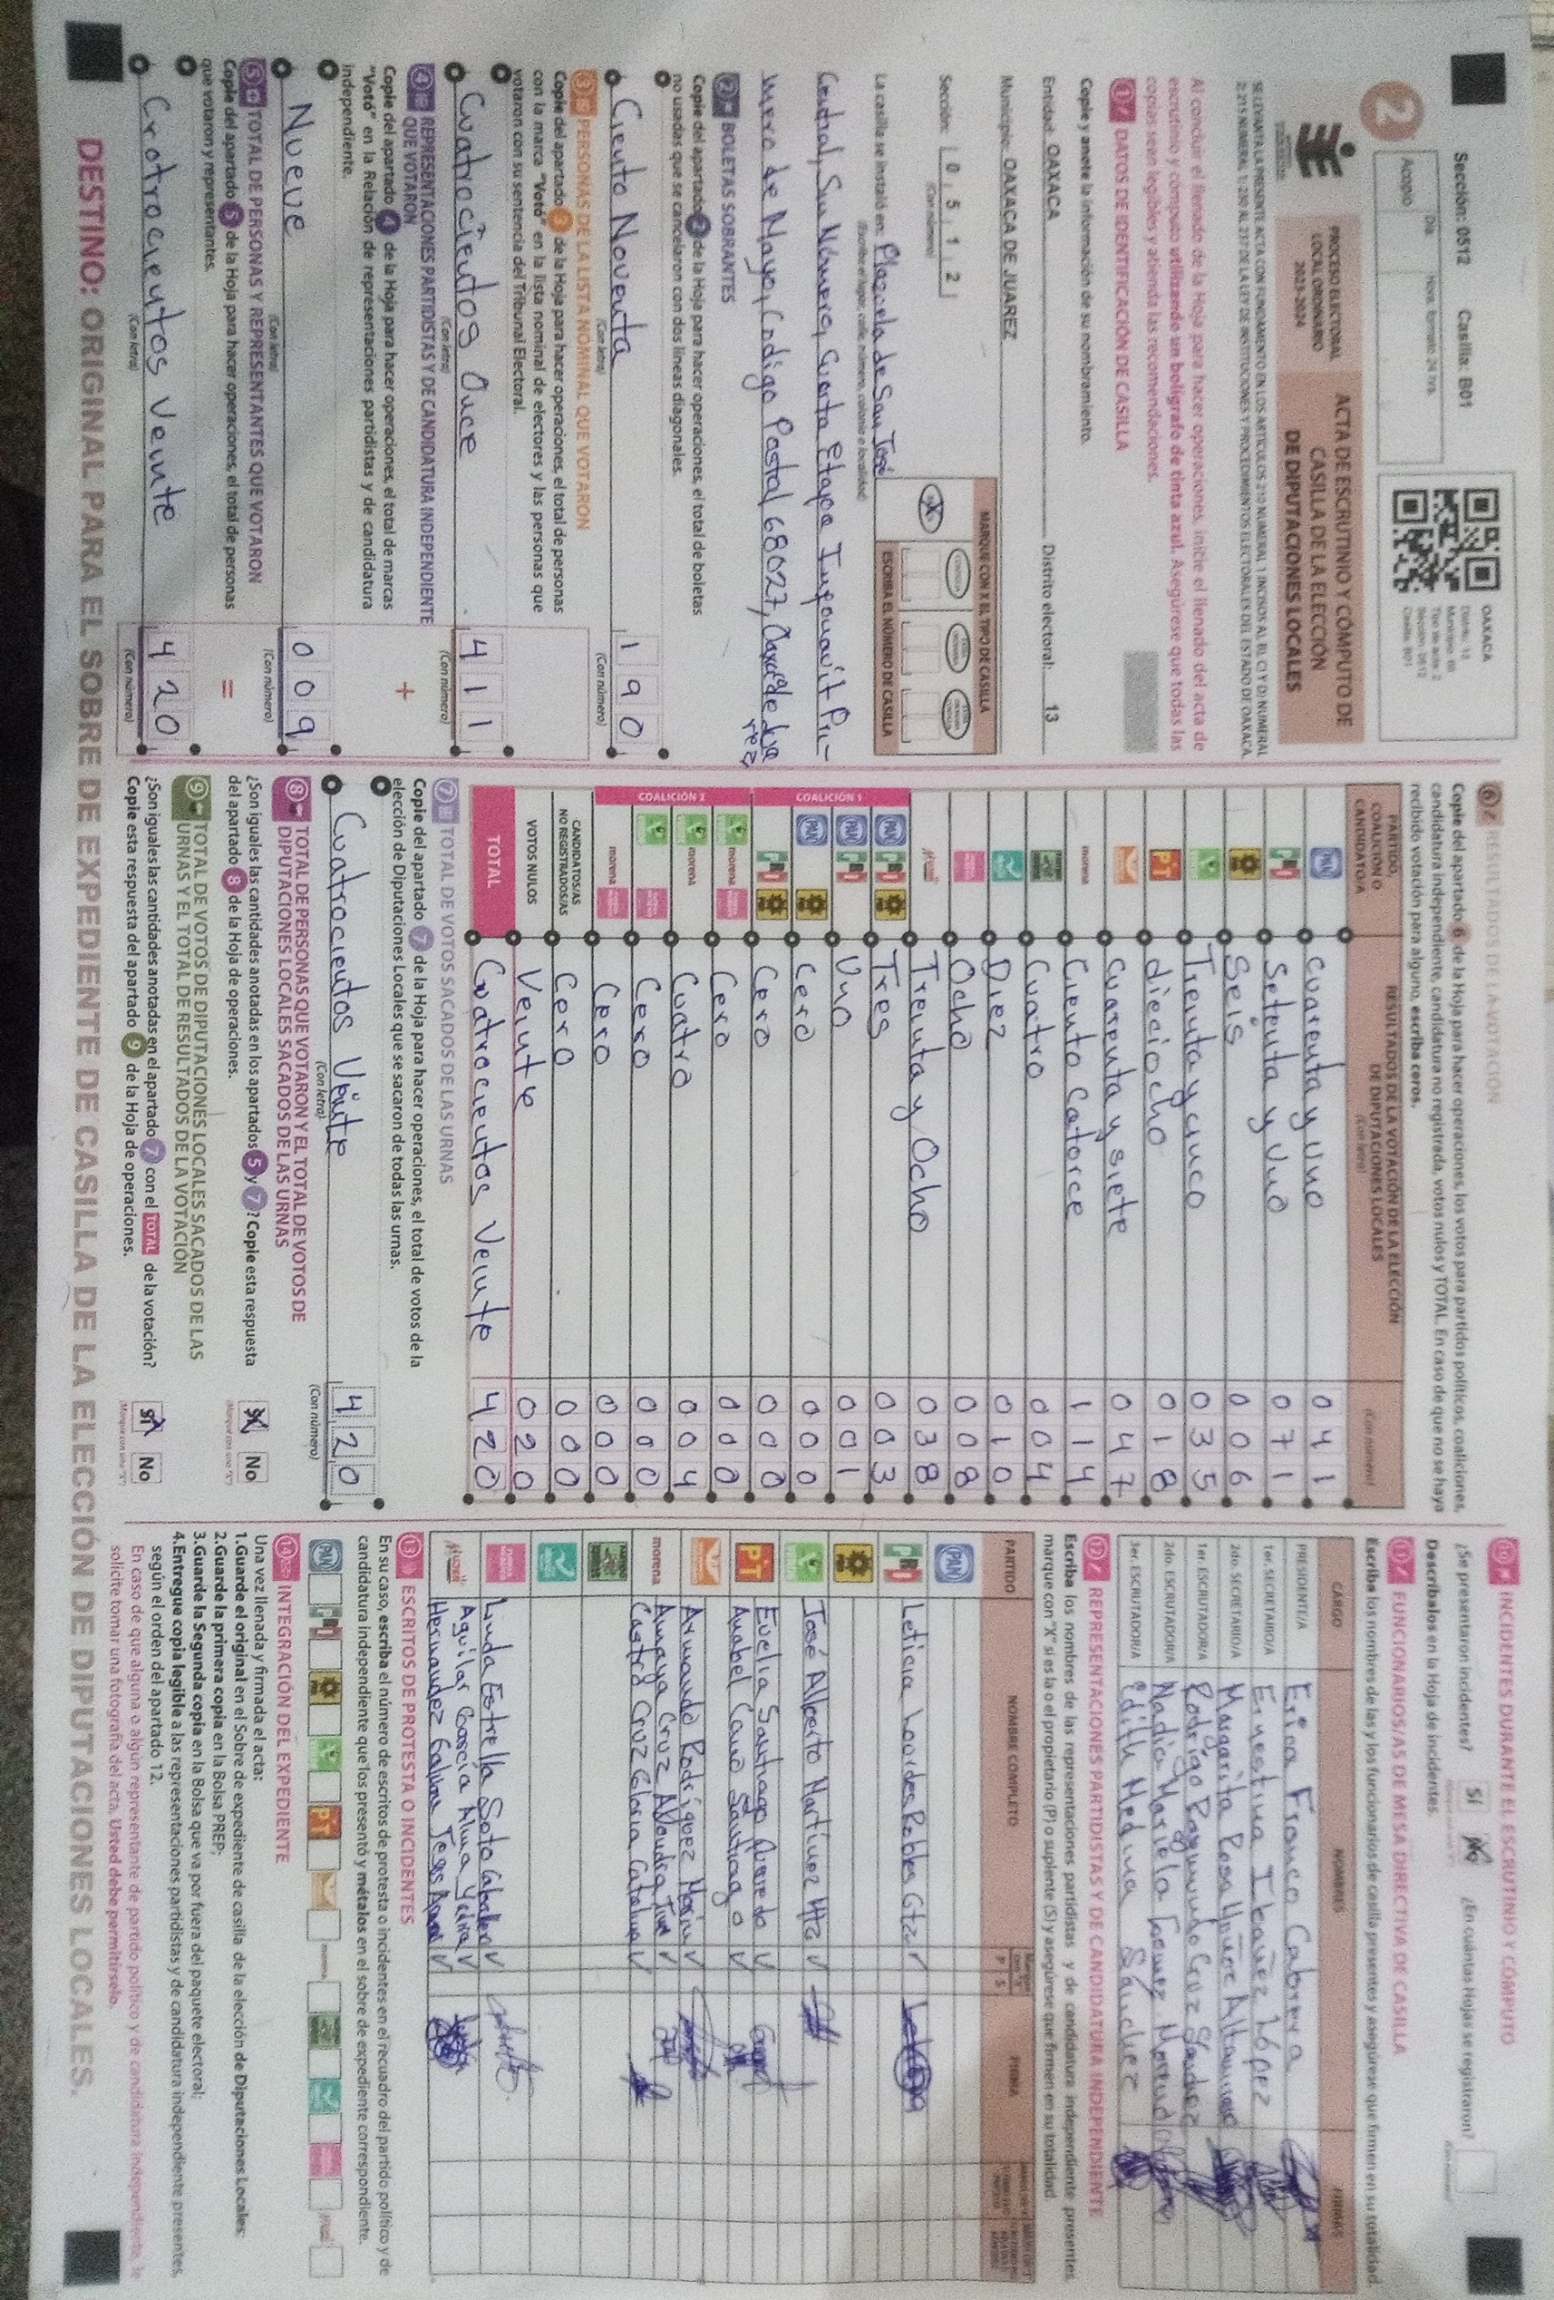 Sección: 0512 Casilla: B01
Día Hora, formato 24 hrs.
Acopio
2
PROCESO ELECTORAL
LOCAL ORDINARIO
2023-2024
ACTA DE ESCRUTINIO Y CÓMPUTO DE
CASILLA DE LA ELECCIÓN
DE DIPUTACIONES LOCALES
OAXACA
SE LEVANTA LA PRESENTE ACTA CON FUNDAMENTO EN LOS ARTÍCULOS 210 NUMERAL 1 INCISOS A), B), C) Y D) NUMERAL
2; 215 NUMERAL 1; 230 AL 237 DE LA LEY DE INSTITUCIONES Y PROCEDIMIENTOS ELECTORALES DEL ESTADO DE OAXACA.
Al concluir el llenado de la Hoja para hacer operaciones, inicie el llenado del acta de
escrutinio y cómputo utilizando un bolígrafo de tinta azul. Asegúrese que todas las
copias sean legibles y atienda las recomendaciones.
1 DATOS DE IDENTIFICACIÓN DE CASILLA
Copie y anote la información de su nombramiento.
Entidad: OAXACA Distrito electoral: 13
Municipio: OAXACA DE JUAREZ
Sección: 0 5 1 2
(Con número)
MARQUE CON X EL TIPO DE CASILLA
ESCRIBA EL NÚMERO DE CASILLA
La casilla se instaló en: Plazuela de San José
(Escriba el lugar, calle, número, colonia o localidad)
Central, Sin Número, Cuarta Etapa Infonavit Pri-
mero de Mayo, Codigo Postal 68027, Oaxaca de Juarez
2 BOLETAS SOBRANTES
Copie del apartado 2 de la Hoja para hacer operaciones, el total de boletas
no usadas que se cancelaron con dos líneas diagonales.
Ciento Noventa 1 9 0
(Con letra) (Con número)
3 PERSONAS DE LA LISTA NOMINAL QUE VOTARON
Copie del apartado 3 de la Hoja para hacer operaciones, el total de personas
con la marca "Votó" en la lista nominal de electores y las personas que
votaron con su sentencia del Tribunal Electoral.
Cuatrocientos Once 4 1 1
(Con letra) (Con número)
4 REPRESENTACIONES PARTIDISTAS Y DE CANDIDATURA INDEPENDIENTE
QUE VOTARON
Copie del apartado 4 de la Hoja para hacer operaciones, el total de marcas
"Votó" en la Relación de representaciones partidistas y de candidatura
independiente.
+
Nueve 0 0 9
(Con letra) (Con número)
5 TOTAL DE PERSONAS Y REPRESENTANTES QUE VOTARON
Copie del apartado 5 de la Hoja para hacer operaciones, el total de personas
que votaron y representantes.
=
Crotrocientos Veinte 4 2 0
(Con letra) (Con número)
6 RESULTADOS DE LA VOTACIÓN
Copie del apartado 6 de la Hoja para hacer operaciones, los votos para partidos políticos, coaliciones,
candidatura independiente, candidatura no registrada, votos nulos y TOTAL. En caso de que no se haya
recibido votación para alguno, escriba ceros.
PARTIDO, COALICIÓN O CANDIDATO/A
RESULTADOS DE LA VOTACIÓN DE LA ELECCIÓN DE DIPUTACIONES LOCALES
(Con letra) (Con número)
PAN cuarenta y uno 0 4 1
PRI setenta y uno 0 7 1
PRD Seis 0 0 6
Treinta y cinco 0 3 5
PT dieciocho 0 1 8
cuarenta y siete 0 4 7
morena Ciento Catorce 1 1 4
Cuatro 0 0 4
Diez 0 1 0
Ocho 0 0 8
Mujer Treinta y Ocho 0 3 8
COALICIÓN 1
PAN PRI PRD Tres 0 0 3
PAN PRI Uno 0 0 1
PAN PRD Cero 0 0 0
PRI PRD Cero 0 0 0
COALICIÓN 2
morena Cero 0 0 0
morena Cuatro 0 0 4
Cero 0 0 0
morena Cero 0 0 0
CANDIDATOS/AS
NO REGISTRADOS/AS Cero 0 0 0
VOTOS NULOS Veinte 0 2 0
TOTAL Cuatrocientos Veinte 4 2 0
7 TOTAL DE VOTOS SACADOS DE LAS URNAS
Copie del apartado 7 de la Hoja para hacer operaciones, el total de votos de la
elección de Diputaciones Locales que se sacaron de todas las urnas.
Cuatrocientos Veinte 4 2 0
(Con letra) (Con número)
8 TOTAL DE PERSONAS QUE VOTARON Y EL TOTAL DE VOTOS DE
DIPUTACIONES LOCALES SACADOS DE LAS URNAS
¿Son iguales las cantidades anotadas en los apartados 5 y 7? Copie esta respuesta
del apartado 8 de la Hoja de operaciones. Sí No
9 TOTAL DE VOTOS DE DIPUTACIONES LOCALES SACADOS DE LAS
URNAS Y EL TOTAL DE RESULTADOS DE LA VOTACIÓN
¿Son iguales las cantidades anotadas en el apartado 7 con el TOTAL de la votación?
Copie esta respuesta del apartado 9 de la Hoja de operaciones. Sí No
10 INCIDENTES DURANTE EL ESCRUTINIO Y CÓMPUTO
¿Se presentaron incidentes? Sí No ¿En cuántas Hojas se registraron?
Descríbalos en la Hoja de incidentes.
11 FUNCIONARIOS/AS DE MESA DIRECTIVA DE CASILLA
Escriba los nombres de las y los funcionarios de casilla presentes y asegúrese que firmen en su totalidad.
CARGO NOMBRES FIRMAS
PRESIDENTE/A Erica Franco Cabrera
1er. SECRETARIO/A Ernestina Ibañez López
2do. SECRETARIO/A Margarita Rosa Muñoz Altamirano
1er. ESCRUTADOR/A Rodrigo Raymundo Cruz Sánchez
2do. ESCRUTADOR/A Nadia Mariela Gomez
3er. ESCRUTADOR/A Edith Medina Sánchez
12 REPRESENTACIONES PARTIDISTAS Y DE CANDIDATURA INDEPENDIENTE
Escriba los nombres de las representaciones partidistas y de candidatura independiente presentes,
marque con "X" si es la o el propietario (P) o suplente (S) y asegúrese que firmen en su totalidad.
PARTIDO NOMBRE COMPLETO P S FIRMA
PAN
PRI Leticia Lourdes Robles Gtz
PRD
José Alberto Martínez Htz
PT Evelia Santiago
Anabel Cano Santiago
Armando Rodríguez
morena Amaya Cruz Alondra
Castro Cruz Gloria Catalina
Linda Estrella Soto Caballero
Mujer Aguilar García Alma Yadira
Hernandez Galvan
13 ESCRITOS DE PROTESTA O INCIDENTES
En su caso, escriba el número de escritos de protesta o incidentes en el recuadro del partido político y de
candidatura independiente que los presentó y métalos en el sobre de expediente correspondiente.
14 INTEGRACIÓN DEL EXPEDIENTE
Una vez llenada y firmada el acta:
1.Guarde el original en el Sobre de expediente de casilla de la elección de Diputaciones Locales;
2.Guarde la primera copia en la Bolsa PREP;
3.Guarde la Segunda copia en la Bolsa que va por fuera del paquete electoral;
4.Entregue copia legible a las representaciones partidistas y de candidatura independiente presentes,
según el orden del apartado 12.
En caso de que alguna o algún representante de partido político y de candidatura independiente, le
solicite tomar una fotografía del acta, Usted debe permitírselo.
DESTINO: ORIGINAL PARA EL SOBRE DE EXPEDIENTE DE CASILLA DE LA ELECCIÓN DE DIPUTACIONES LOCALES.